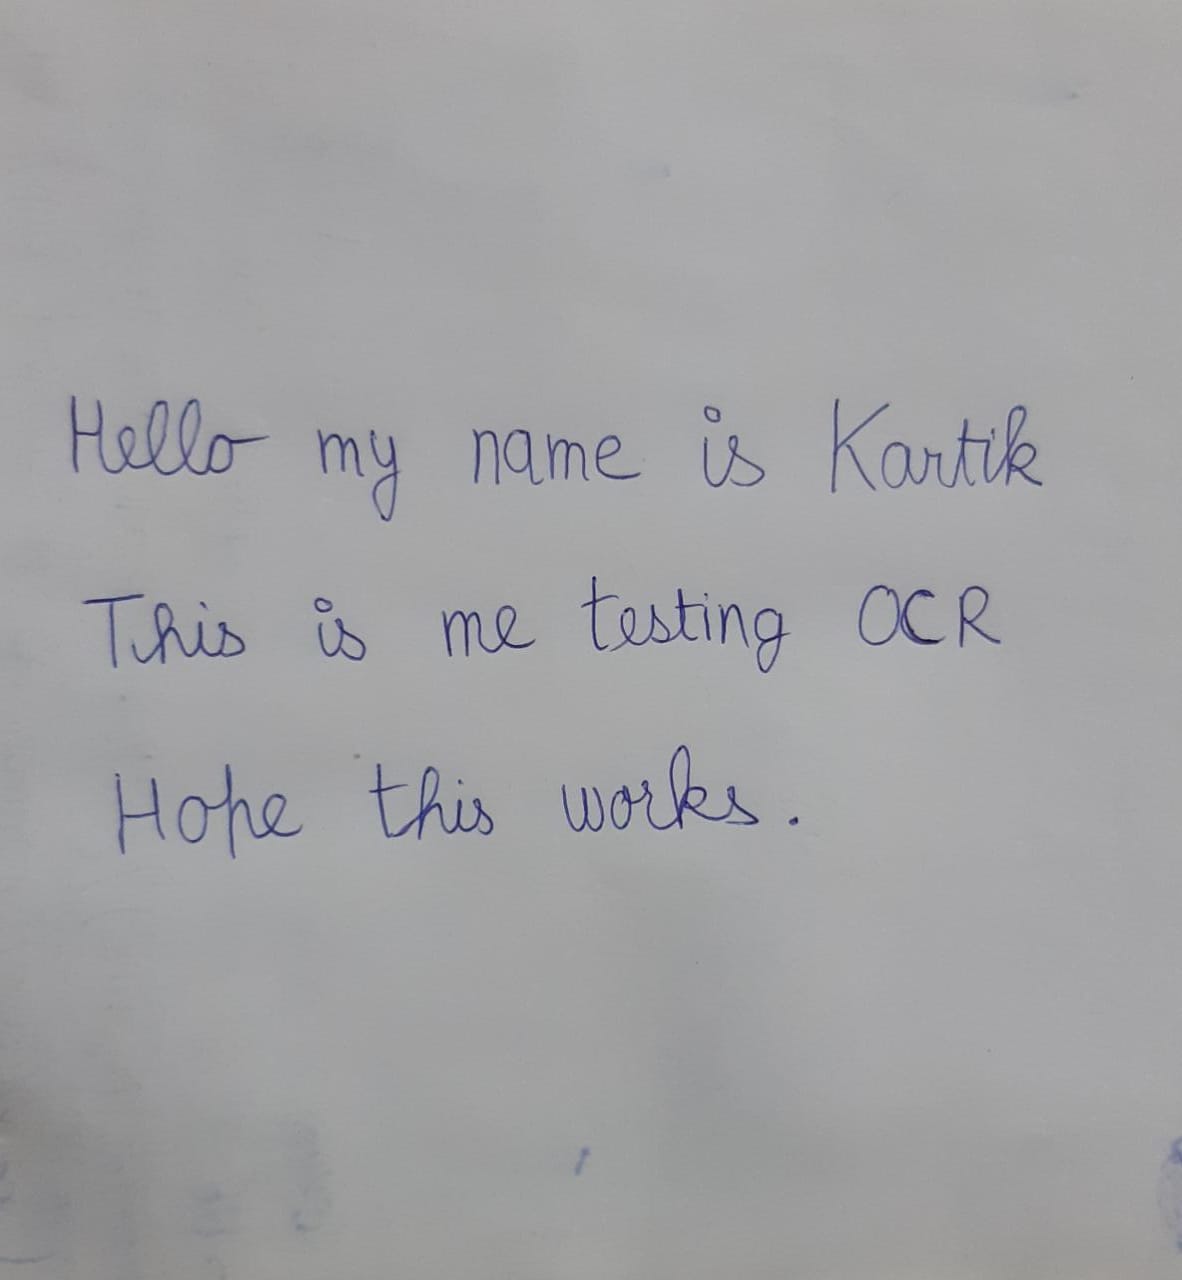 Hello my name is Kartik
This is me testing OCR
Hope this works.